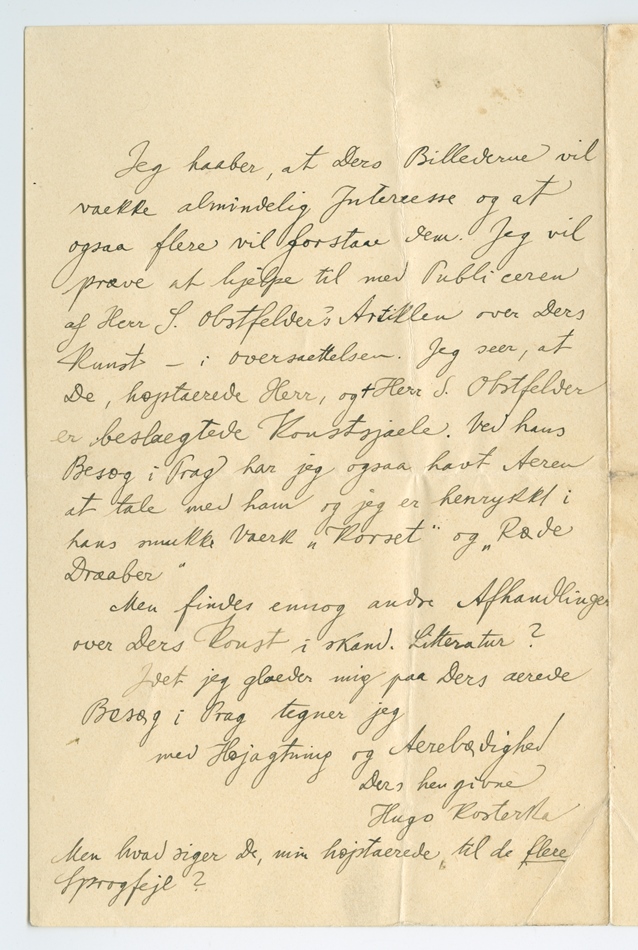 Jeg haaber, at Ders Billederne vil
vaekke almindelig Interesse og at
ogsaa flere vil forstaae dem. Jeg vil
prøve at hjelpe til med Publiceren
af Herr S. Obstfelder's Artiklen over Ders
Kunst – i oversaettelsen. Jeg seer, at
De, højstaerede Herr, og + Herr S. Obstfelder
er beslaegtede Konstsjaele. Ved hans
Besøg i Prag har jeg ogsaa havt Aeren
at tale med ham og jeg er henrykkt i
hans smukke Vaerk „Korset" og „Røde
Draaber"
Men findes ennog andre Afhandlinger
over Ders Konst i skand. Litteratur?
Idet jeg glaeder mig paa Ders aerede
Besøg i Prag tegner jeg
med Højagtning og Aerebødighed
Ders hengivne
Hugo Kosterka
Men hvad siger De, min højstaerede, til de flere
Sprogfejl?